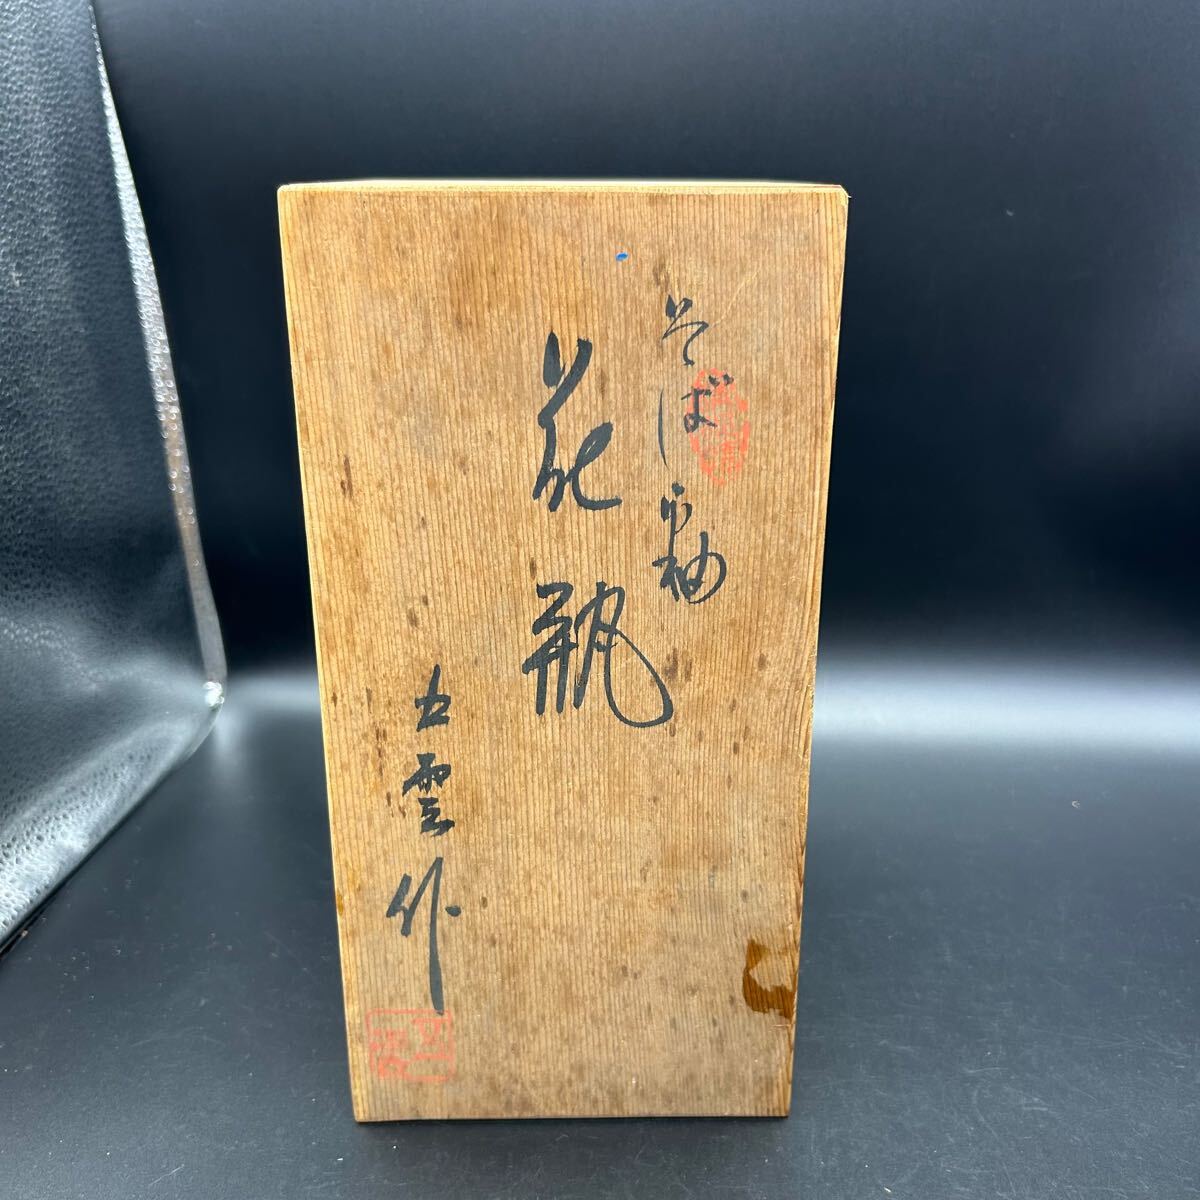 そば釉
花瓶
五雲作